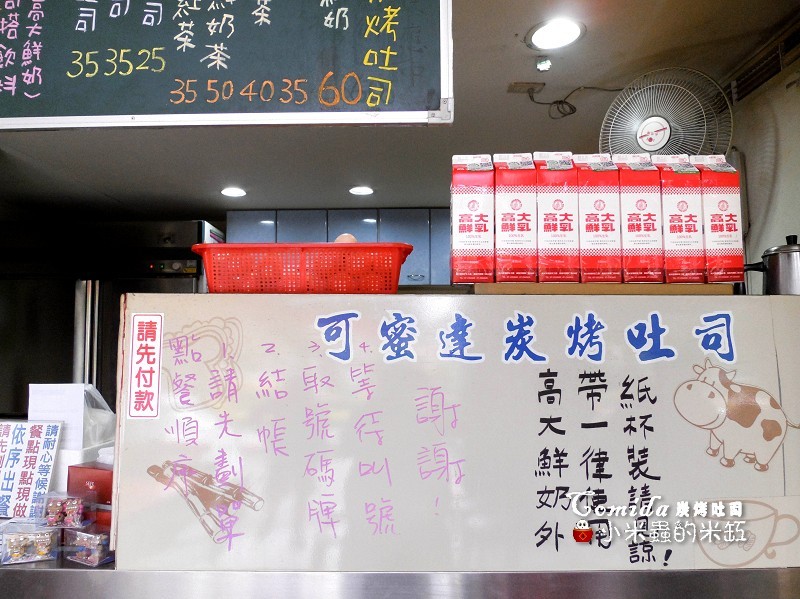 高大鮮奶）
司搭飲料
司
司
紅茶
鮮奶茶
茶
鮮奶
烤吐司
35 35 25
35 50 40 35 60
高大鮮乳
高大鮮乳
高大鮮乳
高大鮮乳
高大鮮乳
高大鮮乳
高大鮮乳
請先付款
可蜜達炭烤吐司
點餐順序
1.請先劃單
2.結帳
3.取號碼牌
4.等待叫號
謝謝！
紙杯裝請見諒！
帶一律使用
高大鮮奶外
請耐心等候謝謝
餐點現點現做
依序出餐
請先
Comida 炭烤吐司
小米蟲的米缸